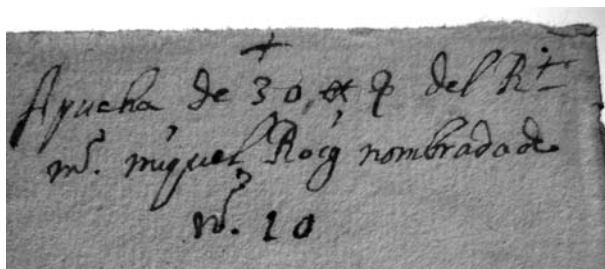 +
Apucha de 30 # del R.t
m.s miquel Roig nombrada de
n.o 10